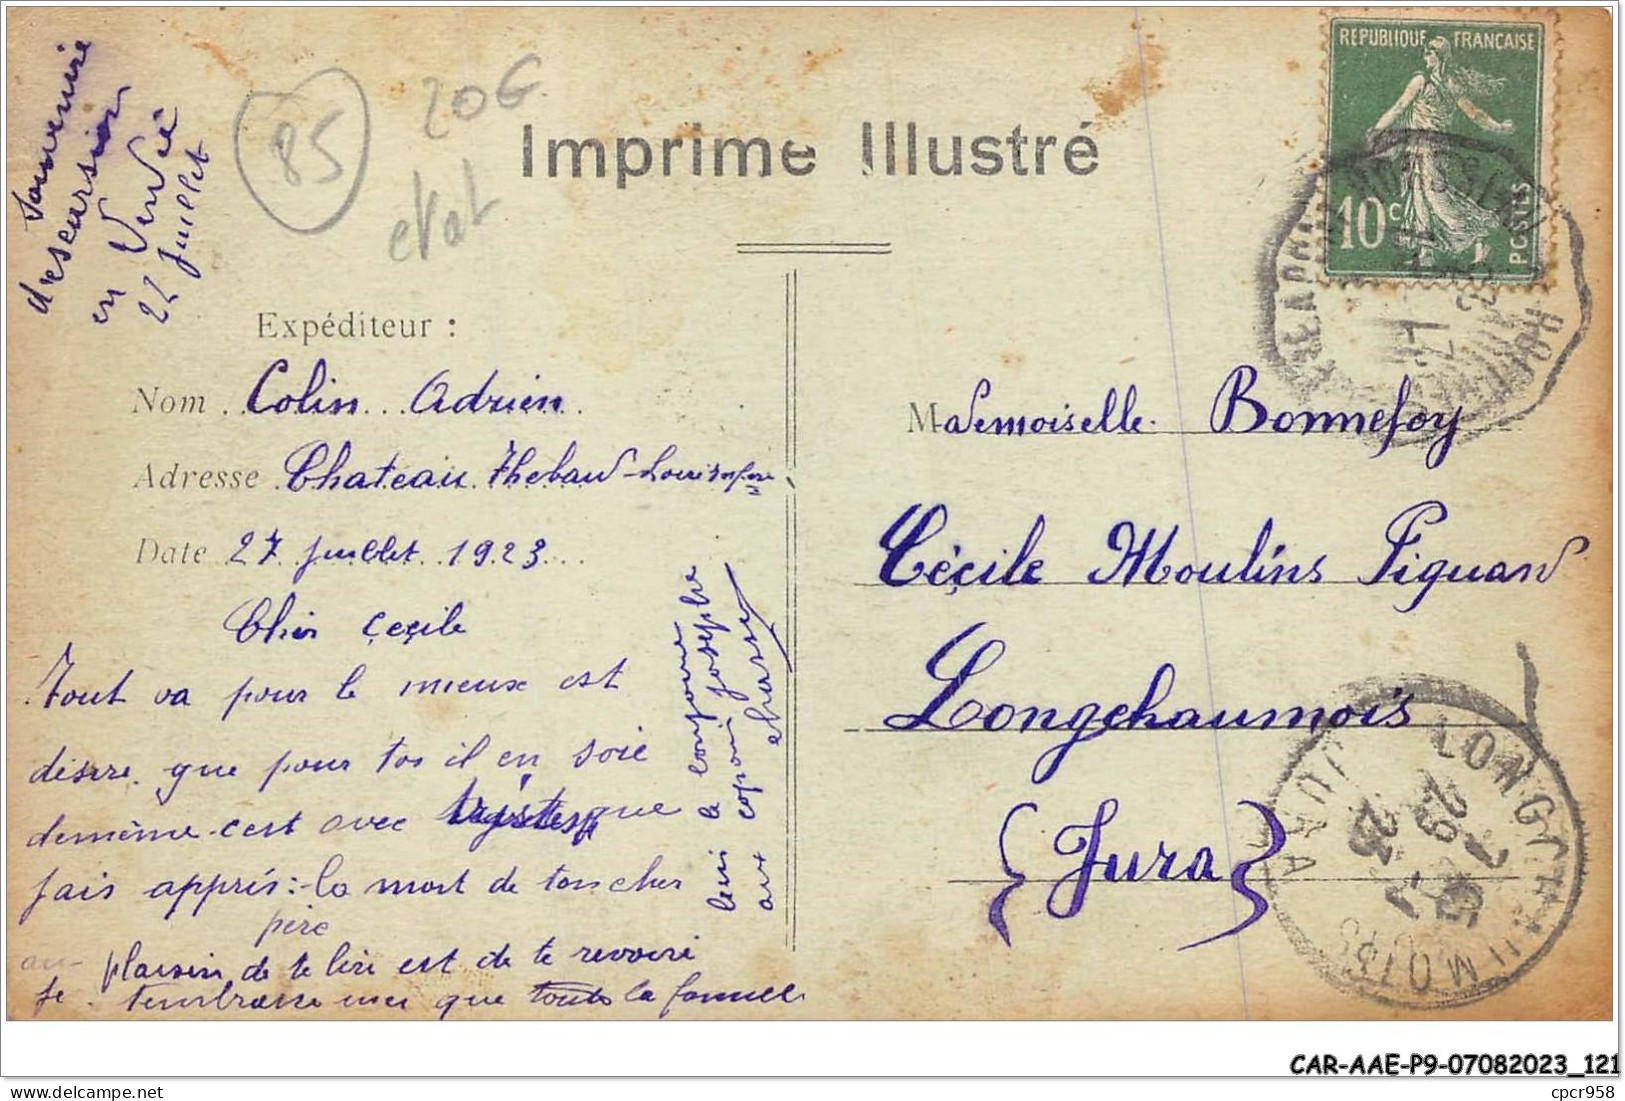 Souvenire
d'escursion
en Vendée
22 Juillet
85
20€
etat
Imprime Illustré
REPUBLIQUE FRANÇAISE
10c
POSTES
Expéditeur :
Nom Colin Adrien
Adresse Chateau Thebaud
Date 27 juillet 1923
Cher Cecile
Tout va pour le mieux est
désire que pour toi il en soie
demême c'est avec que
jais appris: la mort de ton cher
père
au plaisir de te lire est de te revoire
je que toute la famille
Mademoiselle Bonnefoy
Cécile Moulins Piquand
Longchaumois
{Jura}
LONGCHAUMOIS
JURA
29 -7
23
CAR-AAE-P9-07082023_121
cpcr958